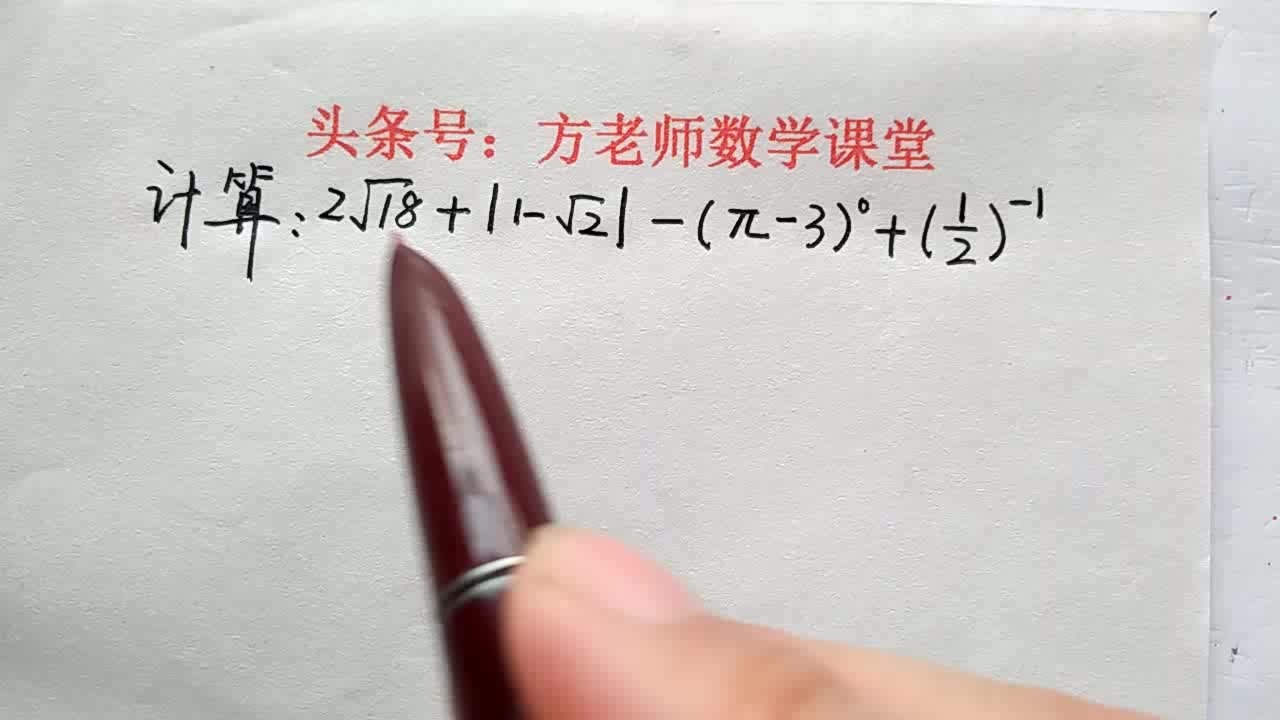 头条号：方老师数学课堂
计算：2√18+|1-√2|-(π-3)⁰+(1/2)⁻¹